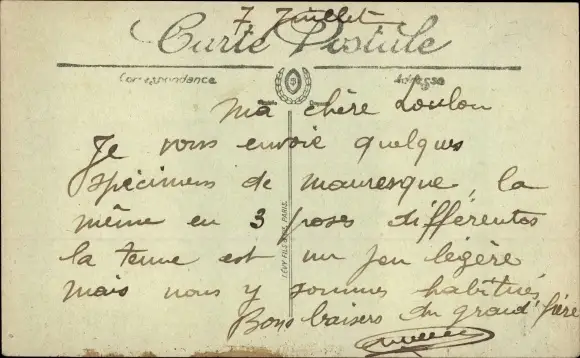 7 Juillet
Carte Postale
Correspondance
Adresse
Ma chère Loulou
Je vous envoie quelques
spécimens de mauresque, la
même en 3 poses différentes
la tenue est un peu légère
mais nous y sommes habitués
Bons baisers du grand frère
LÉVY FILS & Cie, PARIS